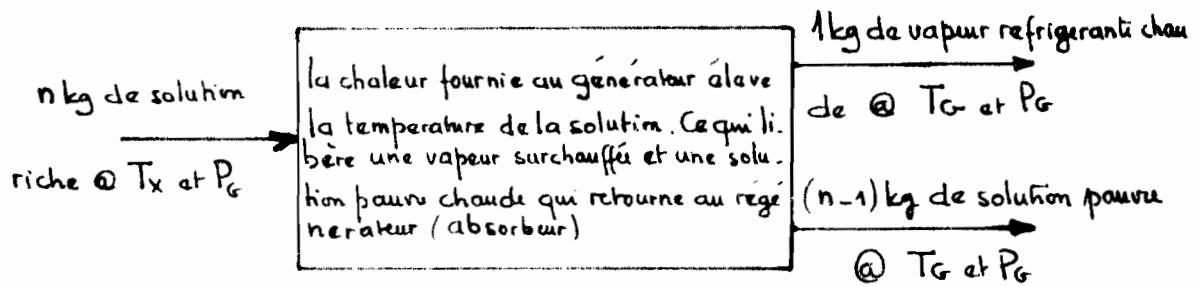 n kg de solution
riche @ Tx et PG
la chaleur fournie au générateur élave
la temperature de la solution. Ce qui li-
bère une vapeur surchauffée et une solu-
tion pauvre chaude qui retourne au régé
nerateur (absorbeur)
1kg de vapeur refrigeranti chau
de @ TG et PG
(n-1) kg de solution pauvre
@ TG et PG